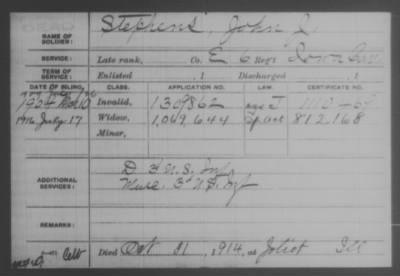 NAME OF SOLDIER: Stephens, John J.
SERVICE: Late rank, Co. E 6 Reg't Iowa Cav
TERM OF SERVICE: Enlisted , 1 Discharged , 1
DATE OF FILING. CLASS. APPLICATION NO. LAW. CERTIFICATE NO.
Invalid,
1916 July 17 Widow, 1,069,644 812,168
Minor,
ADDITIONAL SERVICES: D 3 U.S. Inf.
3 U.S. Inf
REMARKS:
Died Oct 31, 1914, at Joliet Ill